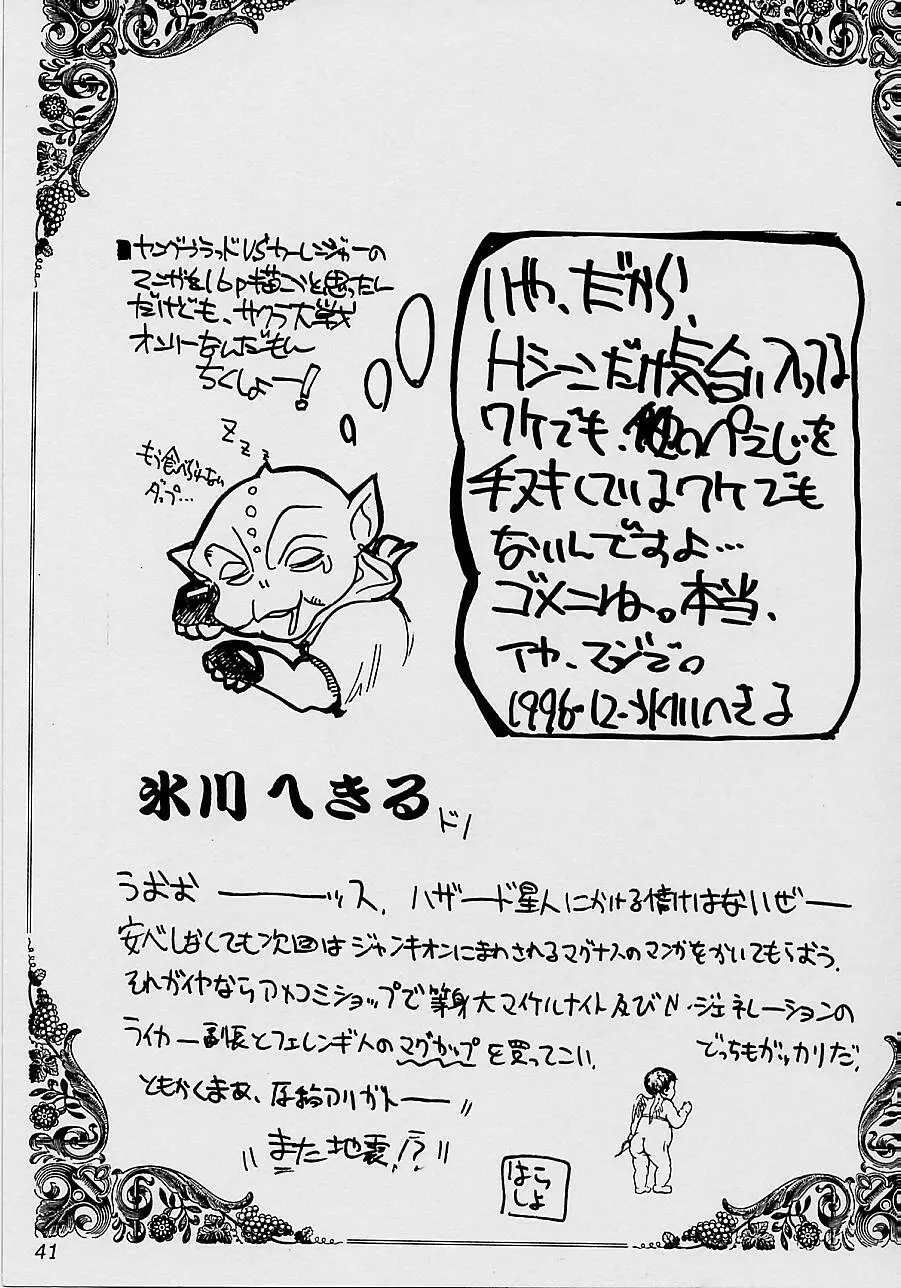 ■ヤングブラッドVSカーレンジャーの
マンガを16p描こうと思ったん
だけども、サクラ大戦
オンリーなんだもん
ちくしょー!
Z Z Z Z
もう食べられない
ダップ…
いや、だから、
Hシーンだけ気合い入ってる
ワケでも、他のぺえじを
手ヌキしているワケでも
ないんですよ…
ゴメンね。本当、
イヤ、マジで。
1996-12-氷川へきる
氷川へきる
ドノ
うおお――ッス、ハザード星人にかける情けはないぜー
安べしなくても次回はジャンキオンにまわされるマグナスのマンガをかいてもらおう。
それがイヤならアメコミショップで等身大マイケルナイト及びN・ジェネレーションの
ライカー副長とフェレンギ人のマグカップを買ってこい
でっちもガッカリだ。
ともかくまあ、原稿アリガトー〃
〃また地震!?〃
はら
しょ
41